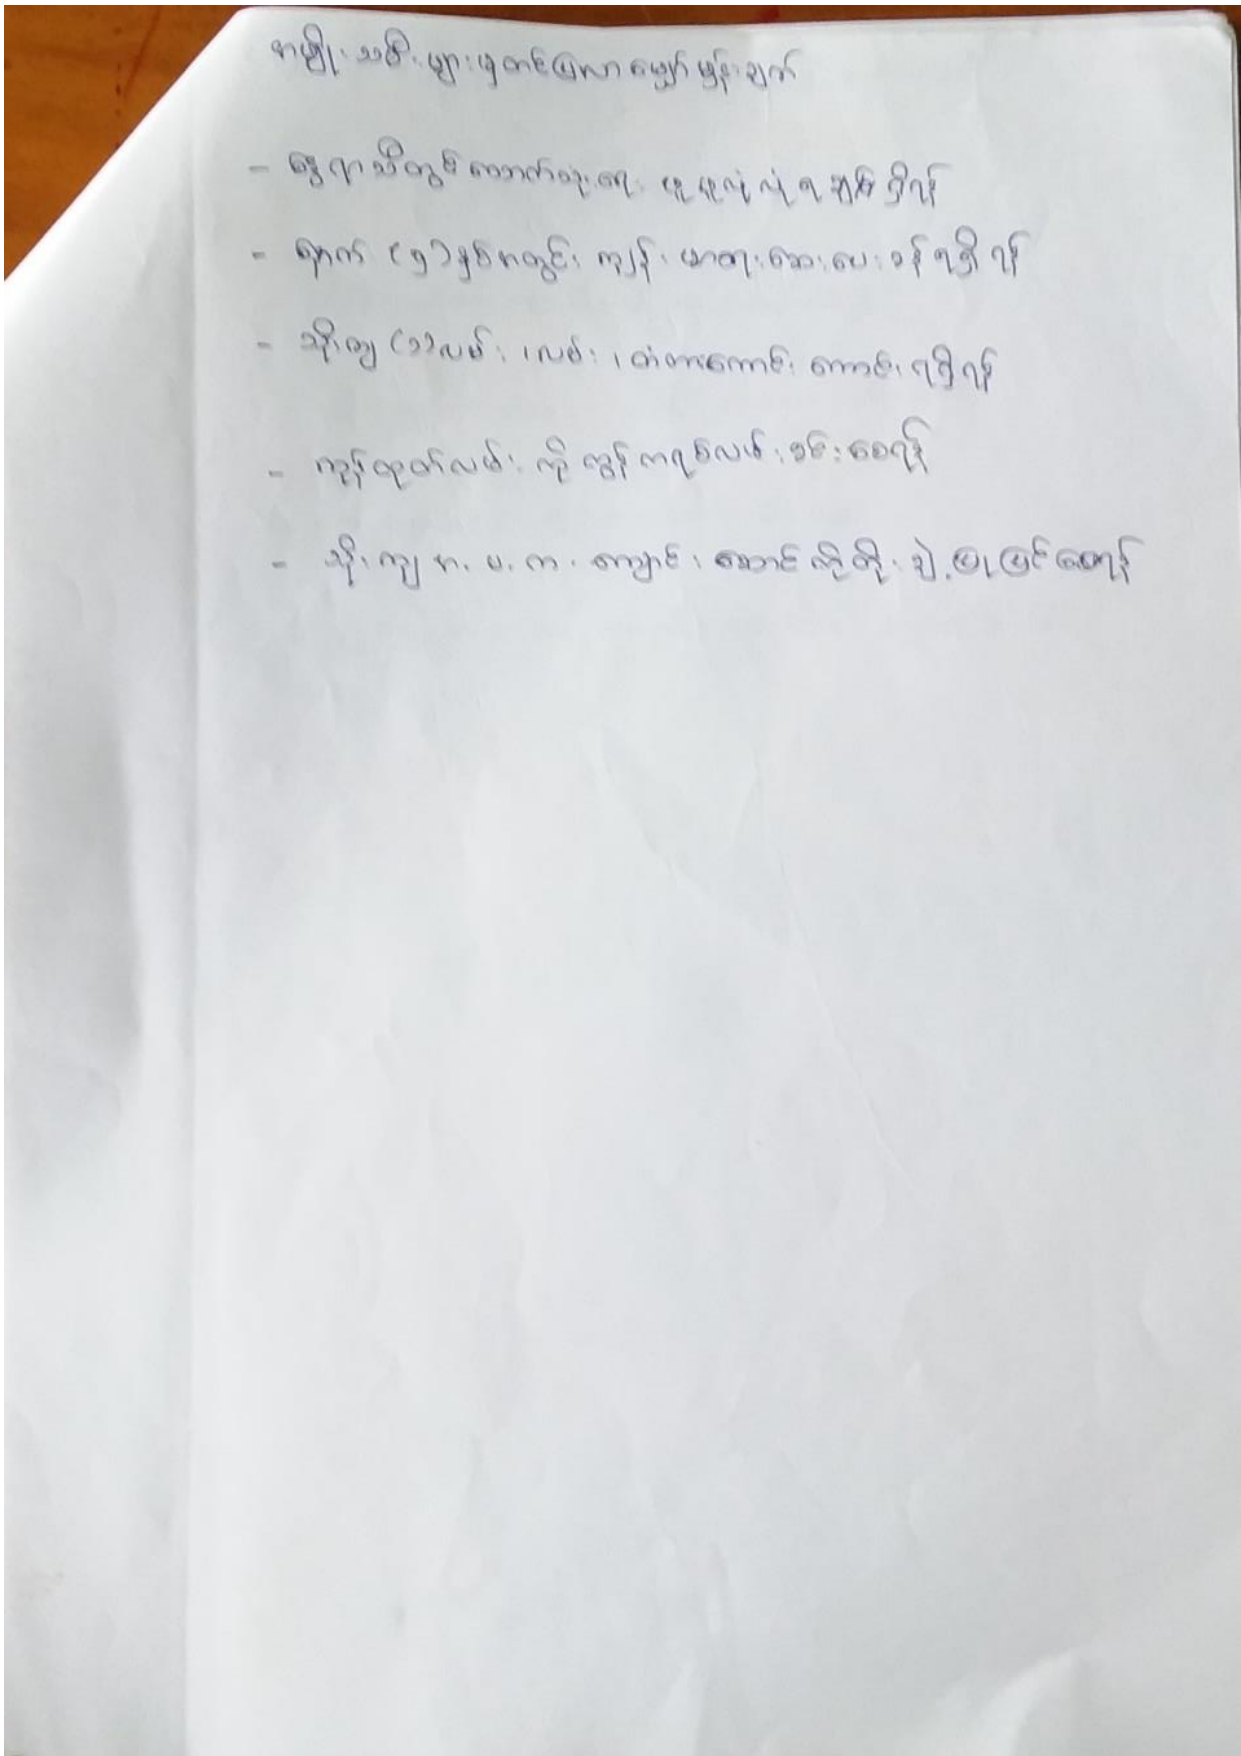 အမျိုးသမီးများမှတင်ပြလာမျှော်မှန်းချက်
- နွေရာသီတွင်သောက်သုံးရေ ဖူဖူလုံလုံရရှိရန်
- နောက် (၅)နှစ်အတွင်း ကျန်းမာရေးဆေးပေးခန်းရရှိရန်
- သိုးကျ (၁)လမ်း၊ လမ်း၊ တံတားကောင်းကောင်းရရှိရန်
- ကုန်ထုတ်လမ်းကို ကွန်ကရစ်လမ်းခင်းစေရန်
- သိုးကျ အ.မ.က ကျောင်းဆောင်ကိုတိုးချဲ့ပြုပြင်စေရန်